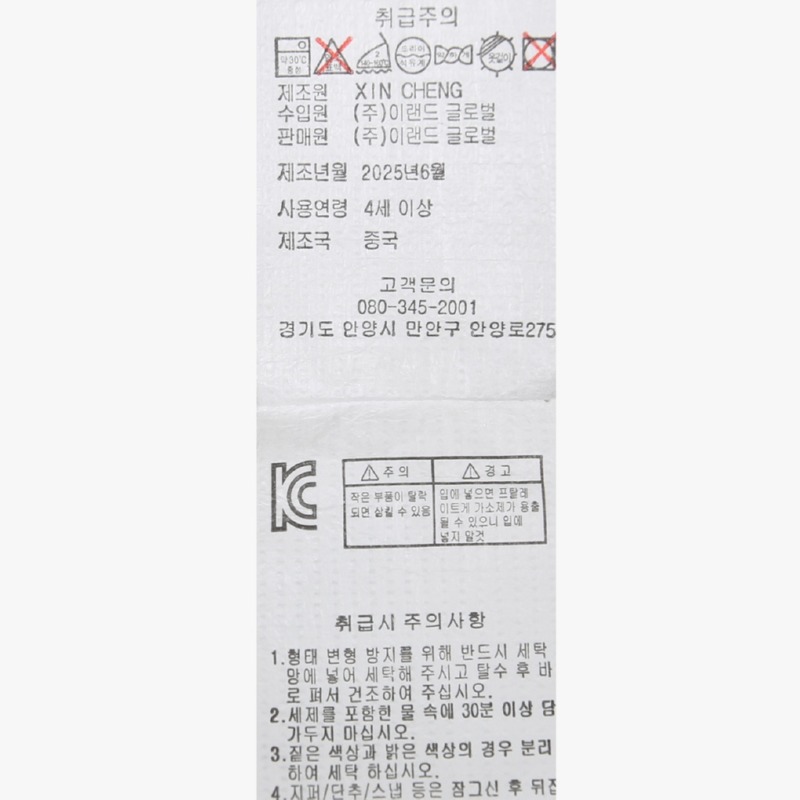 취급주의
약30℃
중성
제조원 XIN CHENG
수입원 (주)이랜드 글로벌
판매원 (주)이랜드 글로벌
제조년월 2025년6월
사용연령 4세 이상
제조국 중국
고객문의
080-345-2001
경기도 안양시 만안구 안양로275
KC
주의
작은 부품이 탈락
되면 삼킬 수 있음
경고
입에 넣으면 프탈레
이트게 가소제가 용출
될 수 있으니 입에
넣지 말것
취급시 주의사항
1.형태 변형 방지를 위해 반드시 세탁
망에 넣어 세탁해 주시고 탈수 후 바
로 펴서 건조하여 주십시오.
2.세제를 포함한 물 속에 30분 이상 담
가두지 마십시오.
3.짙은 색상과 밝은 색상의 경우 분리
하여 세탁 하십시오.
4.지퍼/단추/스냅 등은 잠그신 후 뒤집